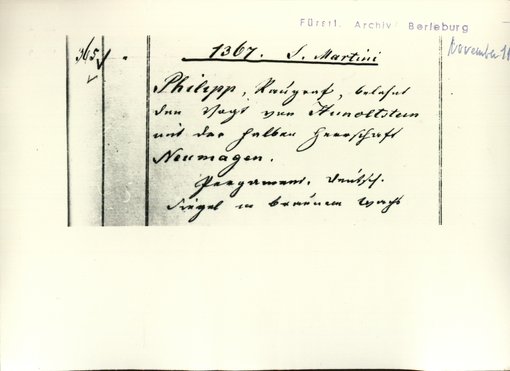 Fürstl. Archiv Berleburg
November 11
365
1367. S. Martini
Philipp, Raugraf, belehnt
den Vogt von Hunoltstein
mit der halben Herrschaft
Neumagen.
Pergament. deutsch.
Siegel in braunem Wachs